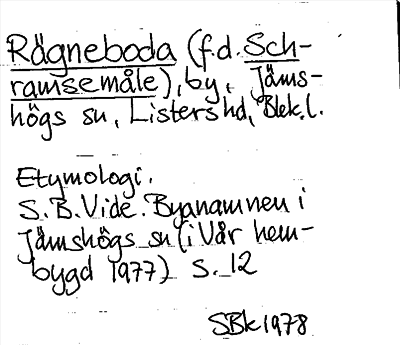 Rägneboda (f.d. Sch-
ramsemåle), by, Jäms-
högs sn, Listers hd, Blek. l.
Etymologi.
S.B. Vide. Byanamnen i
Jämshögs sn (i Vår hem-
bygd 1977) s. 12
SBk 1978